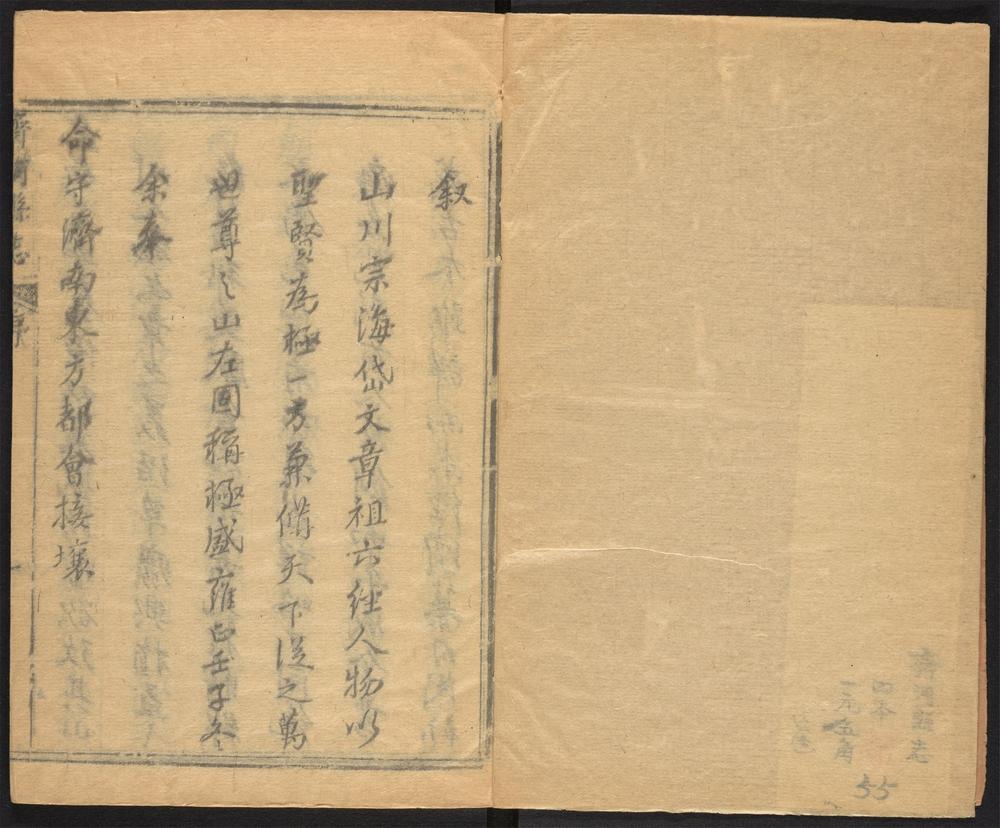 齊河縣志
四本
一元五角
55
叙
山川宗海岱文章祖六经人物以
聖賢為極一方兼偹天下從之萬
世尊之山左固稱極盛雍正壬子冬
余奉
命守濟南東方都會接壤
齊河縣志 序